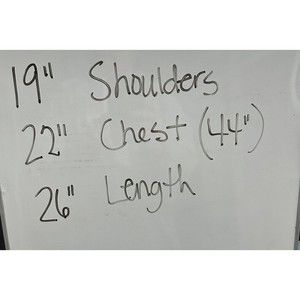 19" Shoulders
22" Chest (44")
26" Length